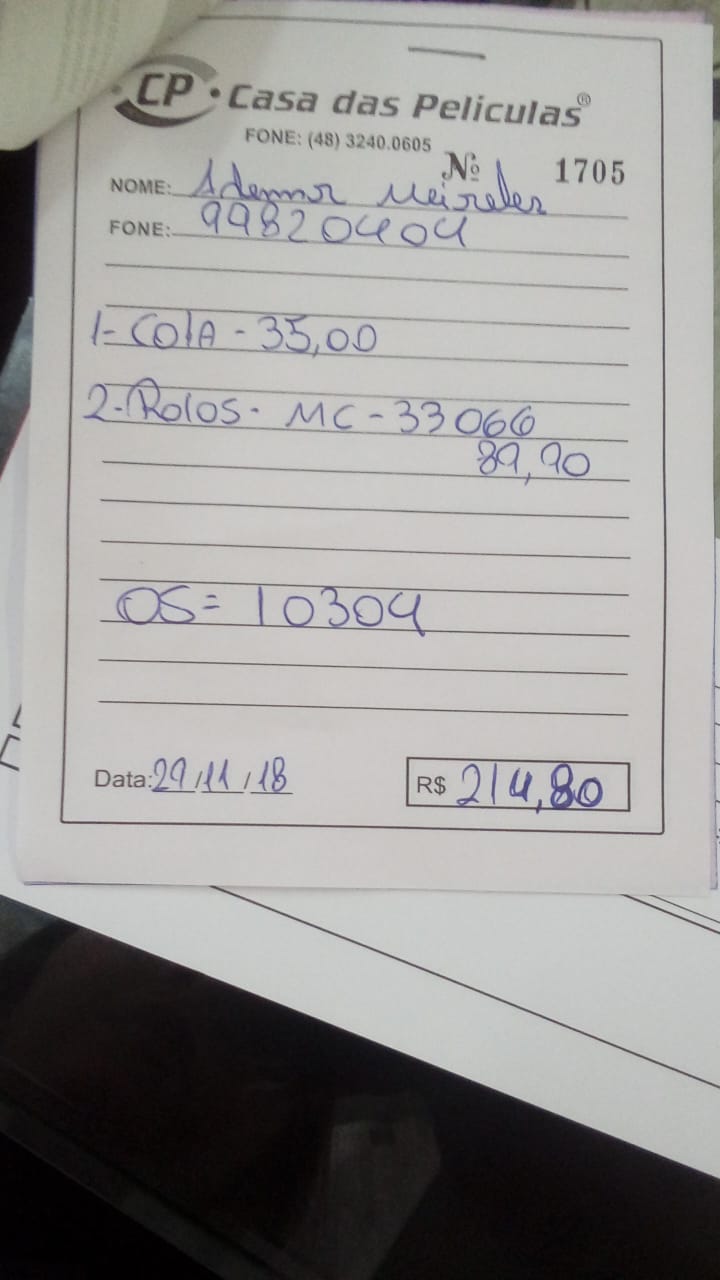 CP • Casa das Películas®
FONE: (48) 3240.0605
Nº 1705
NOME: Ademir Meireles
FONE: 99820404
1- COLA - 35,00
2- Rolos - MC - 33066
89,90
OS = 10304
Data: 29/11/18 R$ 214,80